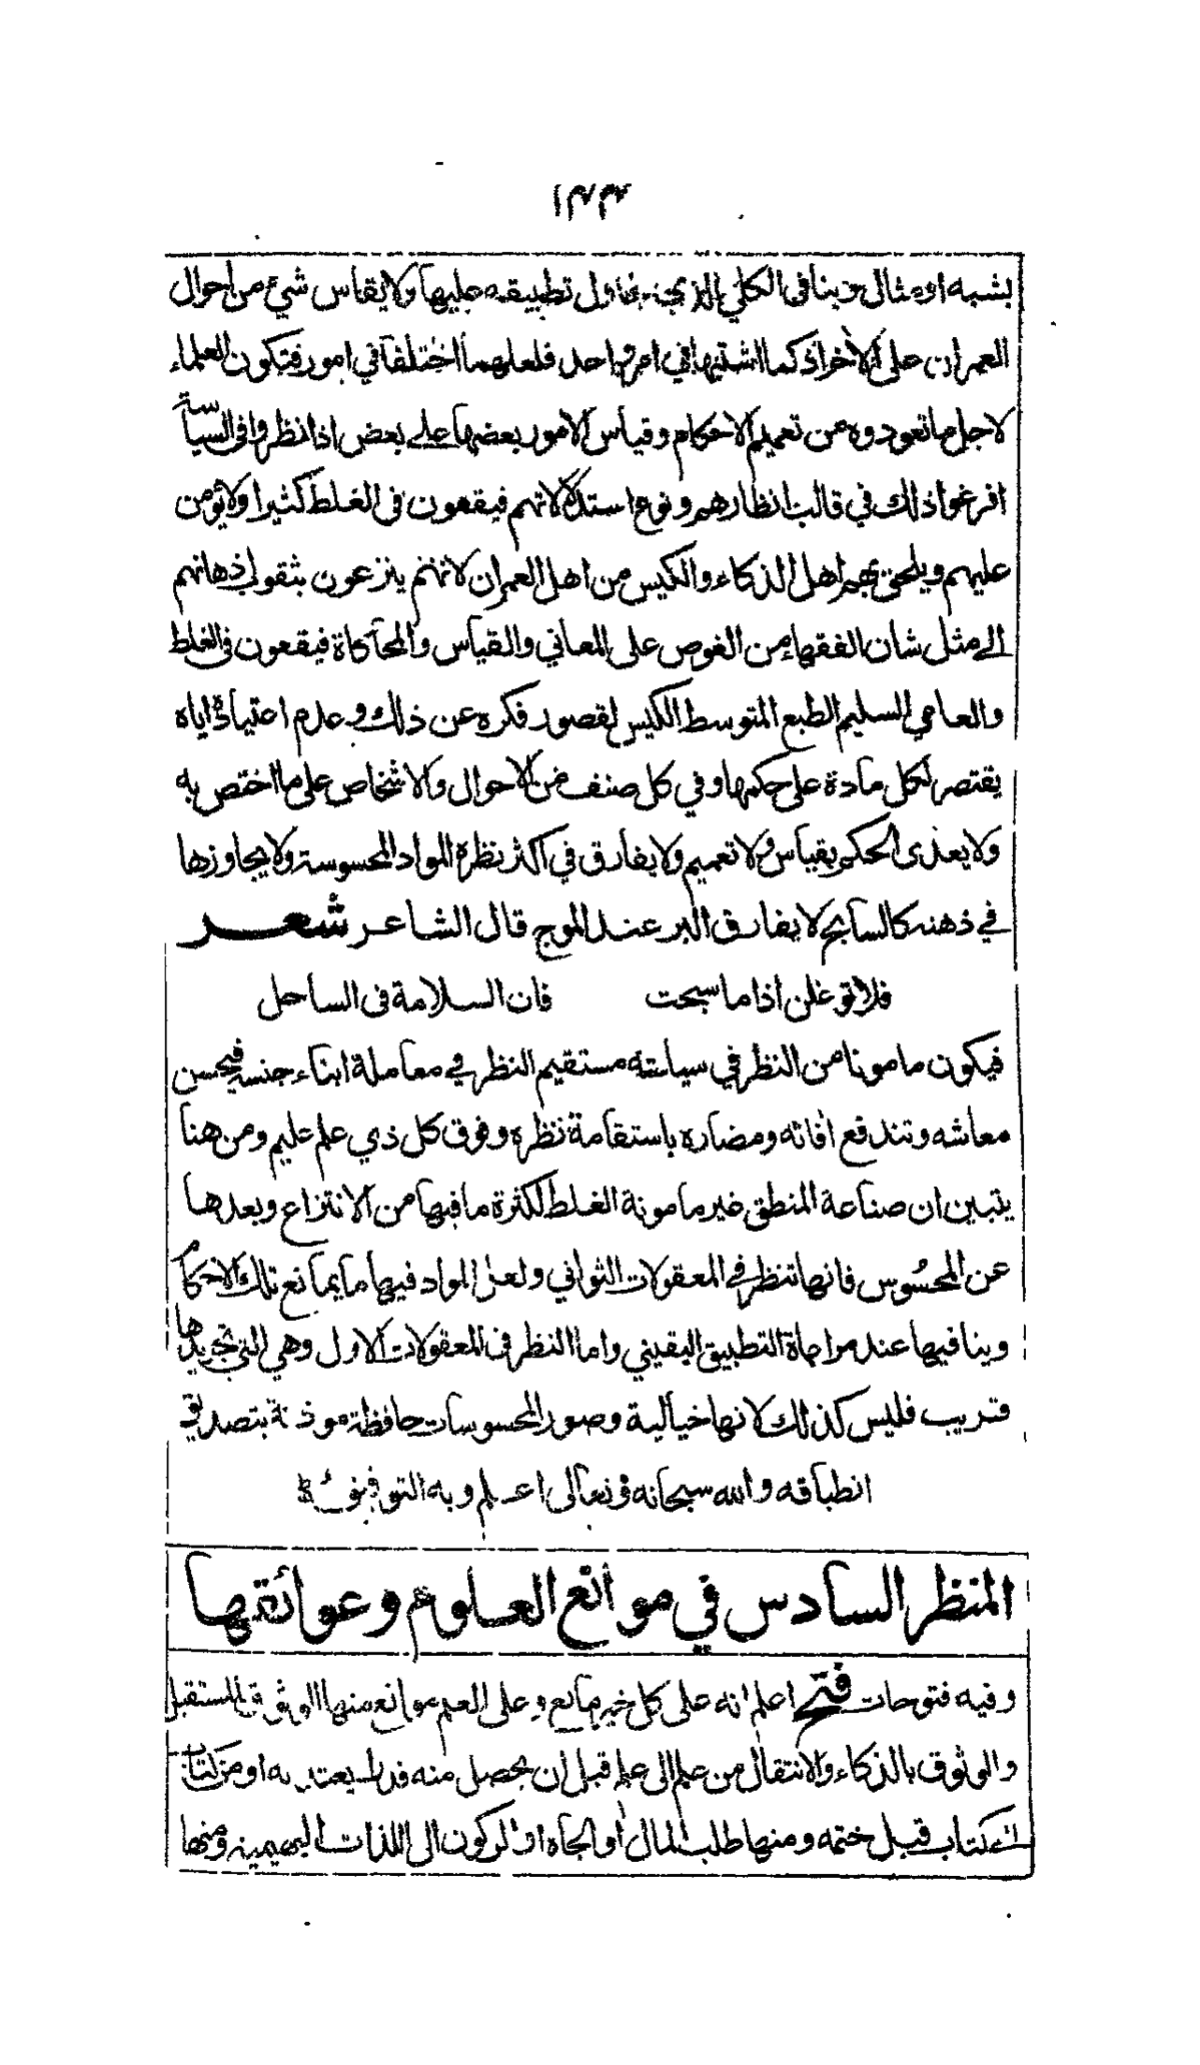 ١٣٣
بشبه او مثال وينافى الكلي الذي يحاول تطبيقه عليها ولا يقاس شيء من احوال
العمران على الاخر اذ كما اشتبها في امر واحد فلعلهما اختلفا في امور فتكون العلماء
لاجل ما تعودوه من تعميم الاحكام وقياس الامور بعضها على بعض اذا نظروا فى السياسة
افرغوا ذلك في قالب انظارهم ونوع استدلالاتهم فيقعون فى الغلط كثيرا ولا يؤمن
عليهم ويلحق بهم اهل الذكاء والكيس من اهل العمران لانهم ينزعون بثقوب اذهانهم
الى مثل شان الفقهاء من الغوص على المعاني والقياس والمحاكاة فيقعون فى الغلط
والعامي السليم الطبع المتوسط الكيس لقصور فكره عن ذلك وعدم اعتياده اياه
يقتصر لكل مادة على حكمها وفي كل صنف من الاحوال والاشخاص على ما اختص به
ولا يعدى الحكم بقياس ولا تعميم ولا يفارق في اكثر نظره المواد المحسوسة ولا يجاوزها
في ذهنه كالسابح لا يفارق البر عند الموج قال الشاعر شعر
فلا توغلن اذا ما سبحت فان السلامة فى الساحل
فيكون مامونا من النظر في سياسته مستقيم النظر في معاملة ابناء جنسه فيحسن
معاشه وتندفع افاته ومضاره باستقامة نظره وفوق كل ذي علم عليم ومن هنا
يتبين ان صناعة المنطق غير مامونة الغلط لكثرة ما فيها من الانتزاع وبعدها
عن المحسوس فانها تنظر في المعقولات الثواني ولعل المواد فيها ما يمانع تلك الاحكام
وينافيها عند مراعاة التطبيق اليقيني واما النظر فى المعقولات الاول وهي التي تجريدها
قريب فليس كذلك لانها خيالية وصور المحسوسات حافظة موذنة بتصديق
انطباقه والله سبحانه وتعالى اعلم وبه التوفيق
المنظر السادس في موانع العلوم وعوائقها
وفيه فتوحات فتح اعلم انه على كل خير مانع وعلى العلم موانع منها الوثوق بالمستقبل
والوثوق بالذكاء والانتقال من علم الى علم قبل ان يحصل منه قدر يعتد به او من كتاب
الى كتاب قبل ختمه ومنها طلب المال او الجاه او الركون الى اللذات البهيمية ومنها